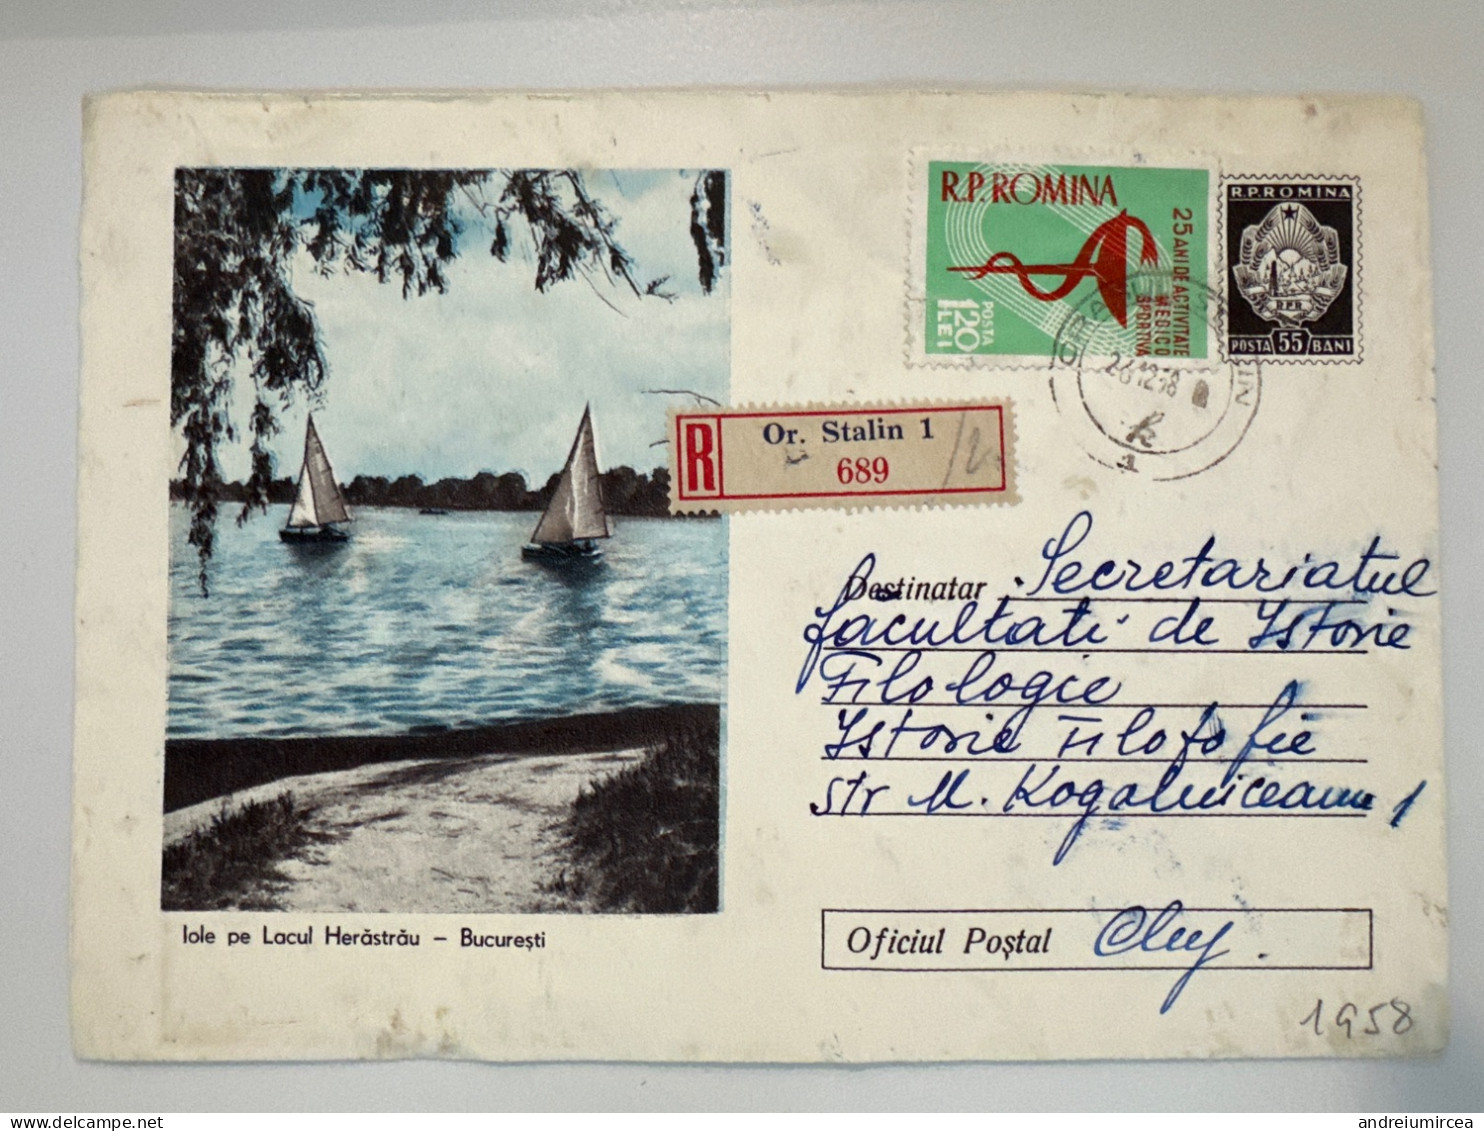 R.P.ROMINA
25 ANI DE ACTIVITATE
MEDICO
SPORTIVA
POSTA
1,20
LEI
R.P.ROMINA
R.P.R
POSTA 55 BANI
26.12.58
1
R
Or. Stalin 1
689
Destinatar Secretariatul
facultati de Istorie
Filologie
Istorie Filozofie
str M. Kogalniceanu 1
Oficiul Poștal Cluj.
Iole pe Lacul Herăstrău – București
1958
andreiumircea